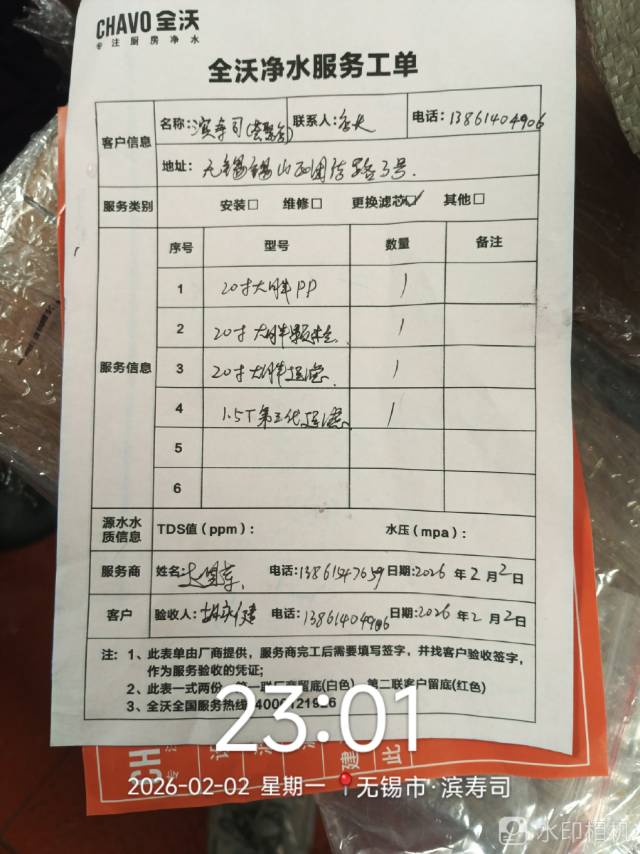 CHAVO 全沃
专注厨房净水
全沃净水服务工单
客户信息
名称：滨寿司(荟聚店) 联系人：店长 电话：13861404906
地址：无锡锡山区团结路3号.
服务类别 安装□ 维修□ 更换滤芯☑ 其他□
服务信息
序号 型号 数量 备注
1 20寸大胖PP 1
2 20寸大胖颗粒 1
3 20寸大胖超滤 1
4 1.5T第三代超滤 1
5
6
源水水质信息 TDS值（ppm）： 水压（mpa）：
服务商 姓名: 电话:13861547659 日期:2026 年 2 月 2 日
客户 验收人: 电话:13861404906 日期:2026 年 2 月 2 日
注：1、此表单由厂商提供，服务商完工后需要填写签字，并找客户验收签字，
作为服务验收的凭证；
2、此表一式两份，第一联厂商留底(白色) 第二联客户留底(红色)
3、全沃全国服务热线
23:01
2026-02-02 星期一 无锡市·滨寿司
CH
建
此
水印相机